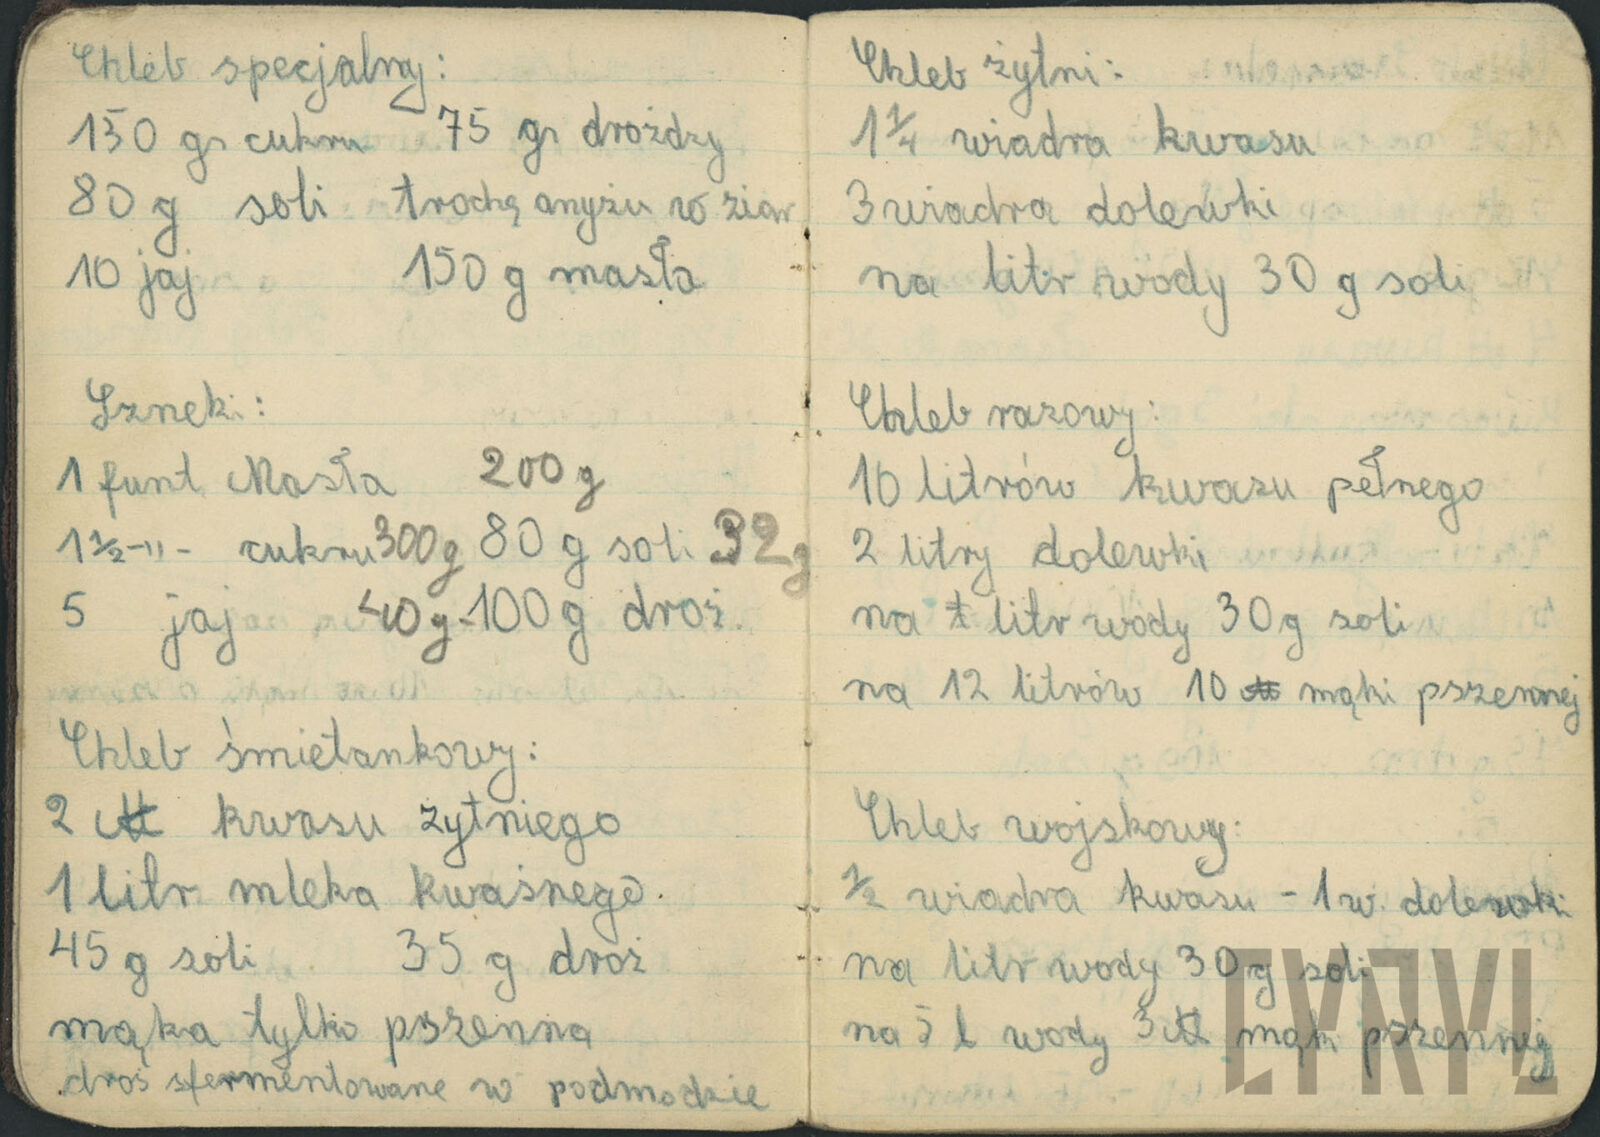 Chleb specjalny:
150 g cukru 75 g drożdzy
80 g soli trochę anyżu w ziar
10 jaj 150 g masła
Szneki:
1 funt Masła 200 g
1 1/2 -"- cukru 300g 80 g soli 32g
5 jaj 40g - 100 g droż.
Chleb śmietankowy:
2 kwasu żytniego
1 litr mleka kwaśnego.
45 g soli 35 g droż
mąka tylko pszenna
droż sfermentowane w podmodzie
Chleb żytni:
1 1/4 wiadra kwasu
3 wiadra dolewki
na litr wody 30 g soli
Chleb razowy:
10 litrów kwasu pełnego
2 litry dolewki
na 1 litr wody 30 g soli
na 12 litrów 10 mąki pszennej
Chleb wojskowy:
1/2 wiadra kwasu - 1 w. dolewki
na litr wody 30 g soli
na 5 l wody 3 mąki pszennej